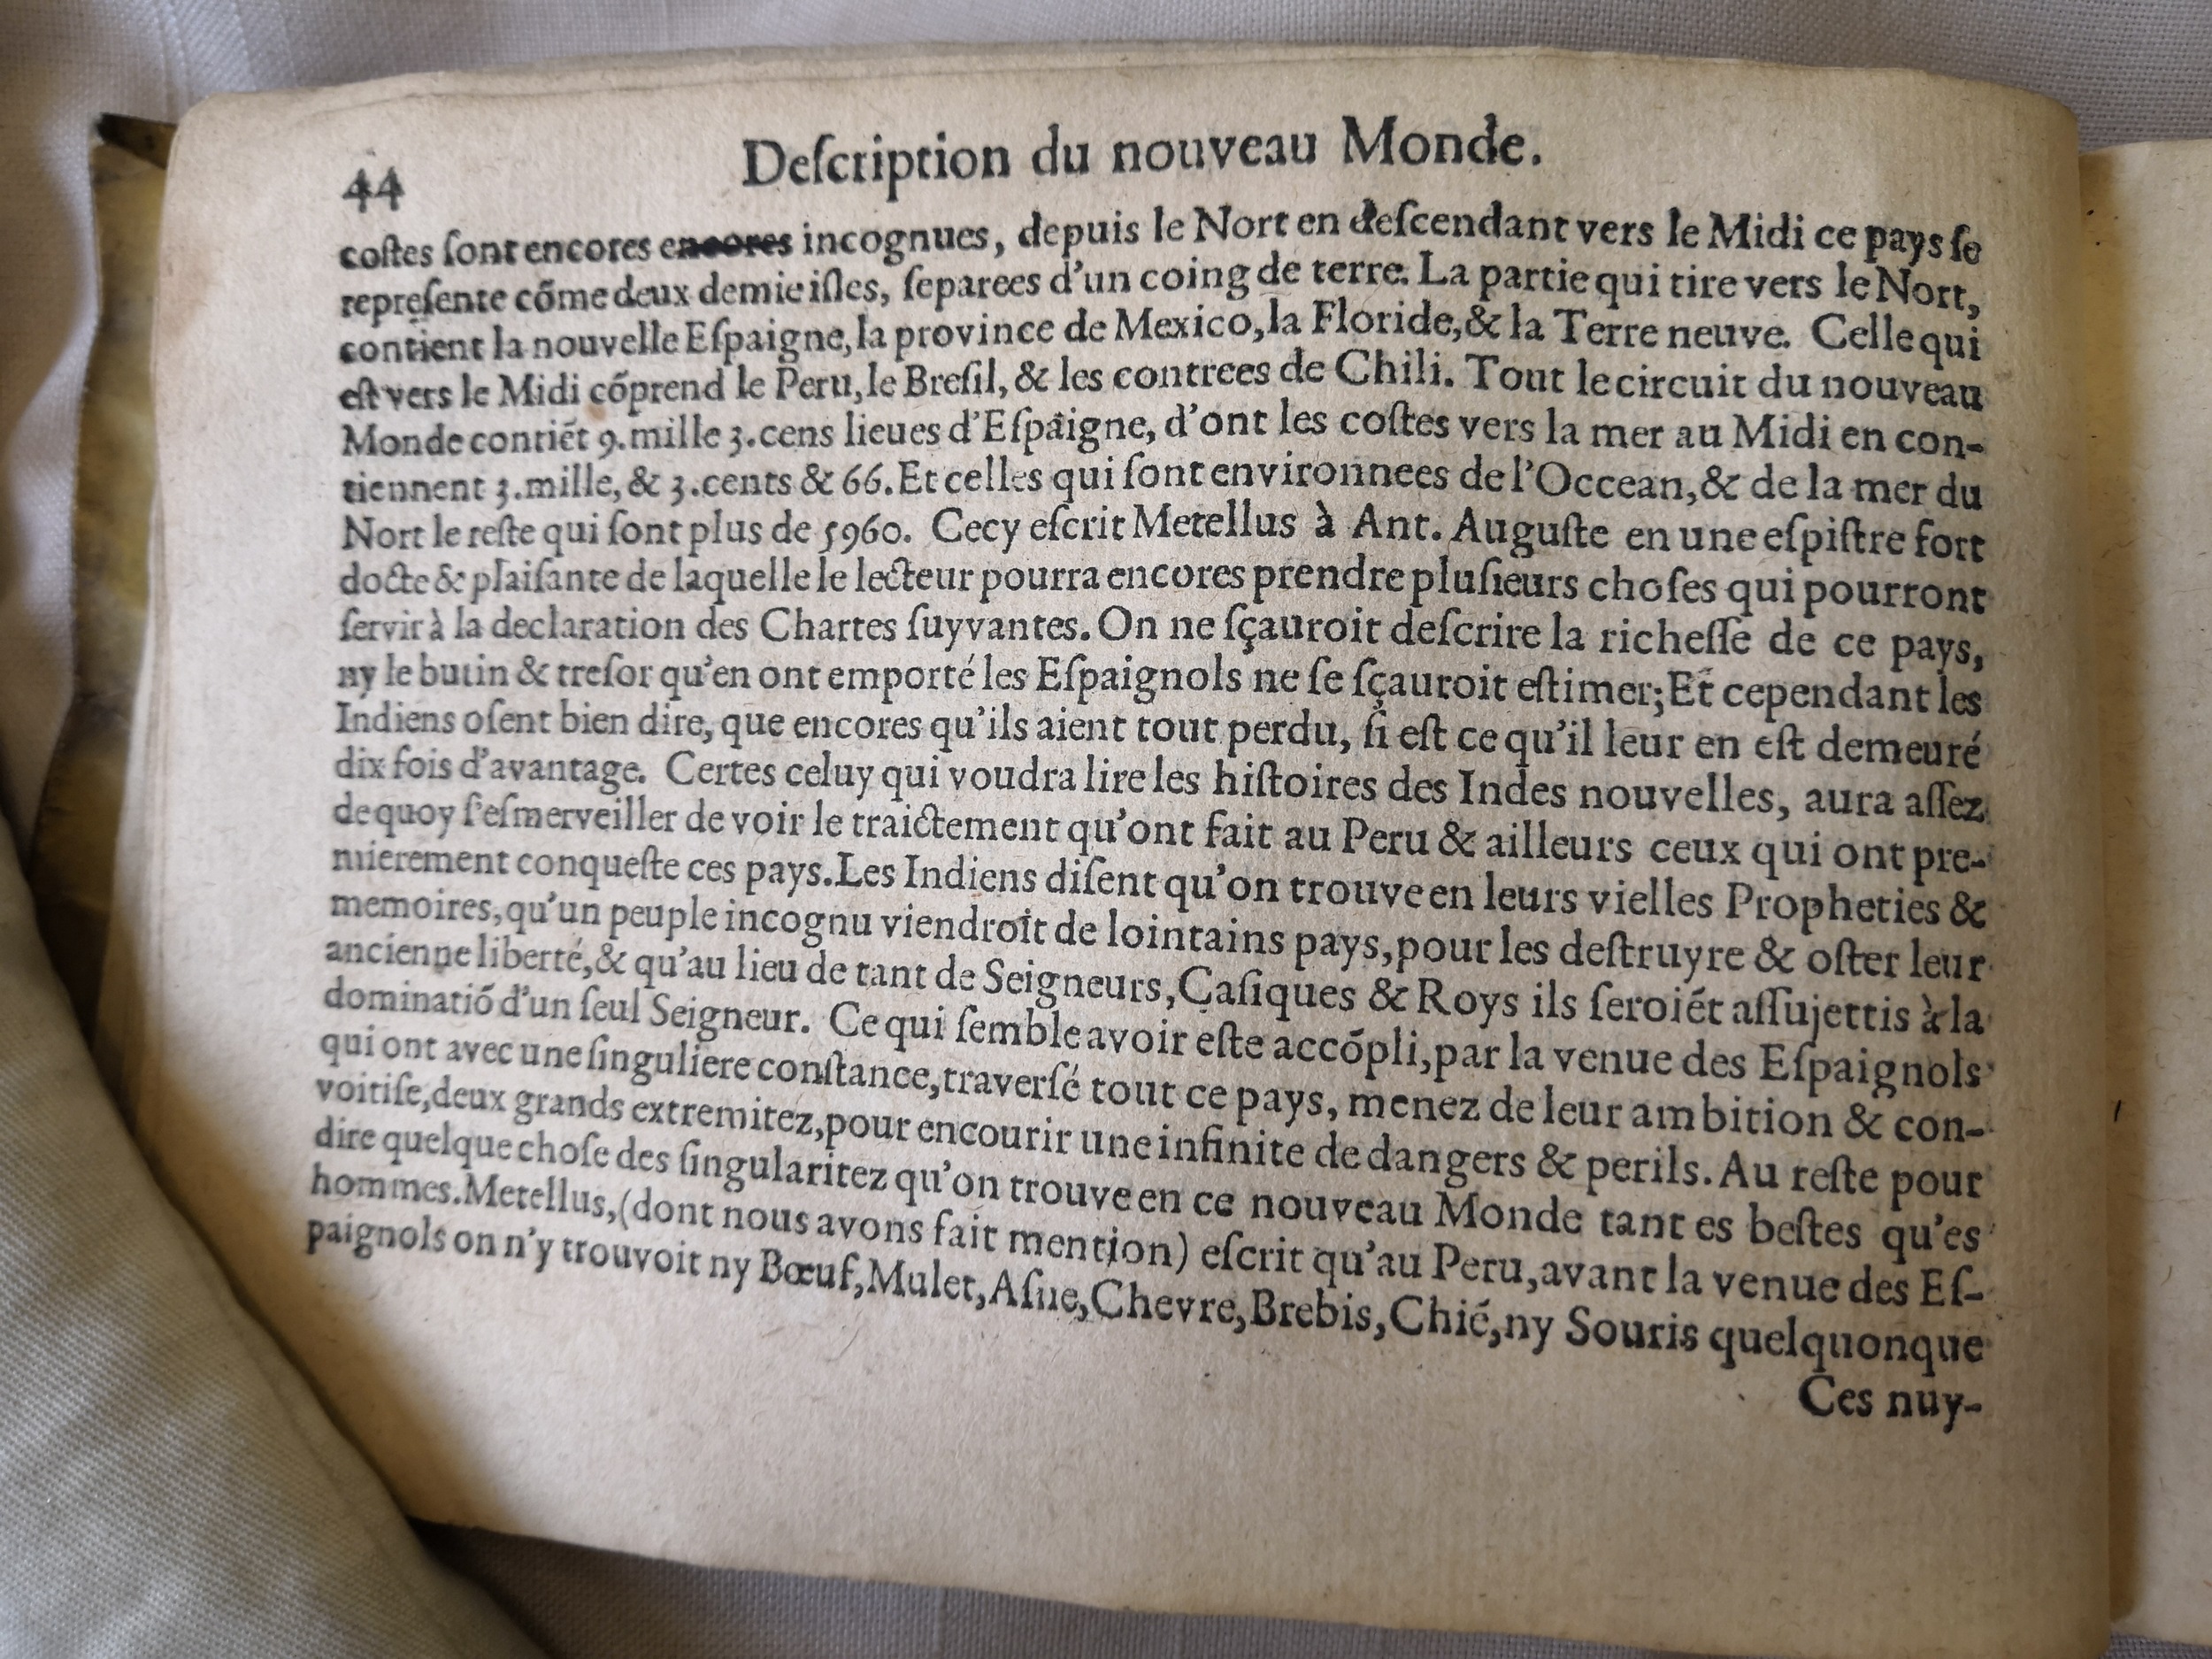 44
Deſcription du nouveau Monde.
coſtes ſont encores encores incognues, depuis le Nort en deſcendant vers le Midi ce pays ſe
repreſente cõme deux demie iſles, ſeparees d'un coing de terre. La partie qui tire vers le Nort,
contient la nouvelle Eſpaigne, la province de Mexico, la Floride, & la Terre neuve. Celle qui
eſt vers le Midi cõprend le Peru, le Breſil, & les contrees de Chili. Tout le circuit du nouveau
Monde contiẽt 9. mille 3. cens lieues d'Eſpaigne, d'ont les coſtes vers la mer au Midi en con-
tiennent 3. mille, & 3. cents & 66. Et celles qui ſont environnees de l'Occean, & de la mer du
Nort le reſte qui ſont plus de 5960. Cecy eſcrit Metellus à Ant. Auguſte en une eſpiſtre fort
docte & plaiſante de laquelle le lecteur pourra encores prendre pluſieurs choſes qui pourront
ſervir à la declaration des Chartes ſuyvantes. On ne ſçauroit deſcrire la richeſſe de ce pays,
ny le butin & treſor qu'en ont emporté les Eſpaignols ne ſe ſçauroit eſtimer; Et cependant les
Indiens oſent bien dire, que encores qu'ils aient tout perdu, ſi eſt ce qu'il leur en eſt demeuré
dix fois d'avantage. Certes celuy qui voudra lire les hiſtoires des Indes nouvelles, aura aſſez
de quoy ſ'eſmerveiller de voir le traictement qu'ont fait au Peru & ailleurs ceux qui ont pre-
mierement conqueſte ces pays. Les Indiens diſent qu'on trouve en leurs vielles Propheties &
memoires, qu'un peuple incognu viendroit de lointains pays, pour les deſtruyre & oſter leur
ancienne liberté, & qu'au lieu de tant de Seigneurs, Caſiques & Roys ils ſeroiẽt aſſujettis à la
dominatiõ d'un ſeul Seigneur. Ce qui ſemble avoir eſte accõpli, par la venue des Eſpaignols
qui ont avec une ſinguliere conſtance, traverſé tout ce pays, menez de leur ambition & con-
voitiſe, deux grands extremitez, pour encourir une infinite de dangers & perils. Au reſte pour
dire quelque choſe des ſingularitez qu'on trouve en ce nouveau Monde tant es beſtes qu'es
hommes. Metellus, (dont nous avons fait mention) eſcrit qu'au Peru, avant la venue des Eſ-
paignols on n'y trouvoit ny Bœuf, Mulet, Aſne, Chevre, Brebis, Chiẽ, ny Souris quelquonque
Ces nuy-